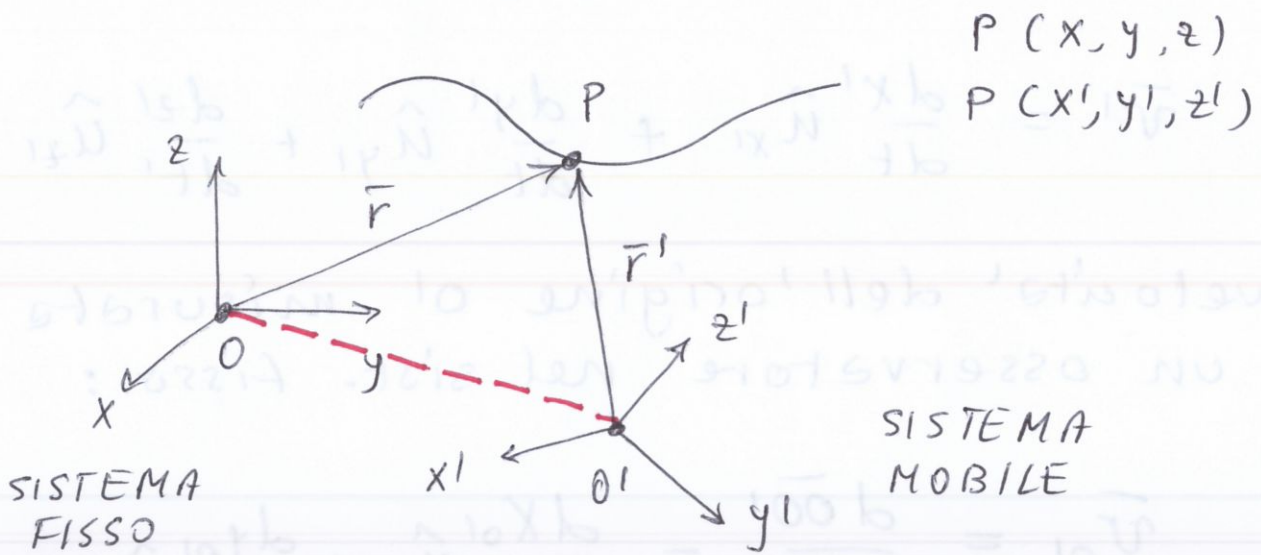 P (x, y, z)
P (x', y', z')
P
z
r̅
r̅'
z'
O
y
x
x'
O'
y'
SISTEMA
FISSO
SISTEMA
MOBILE